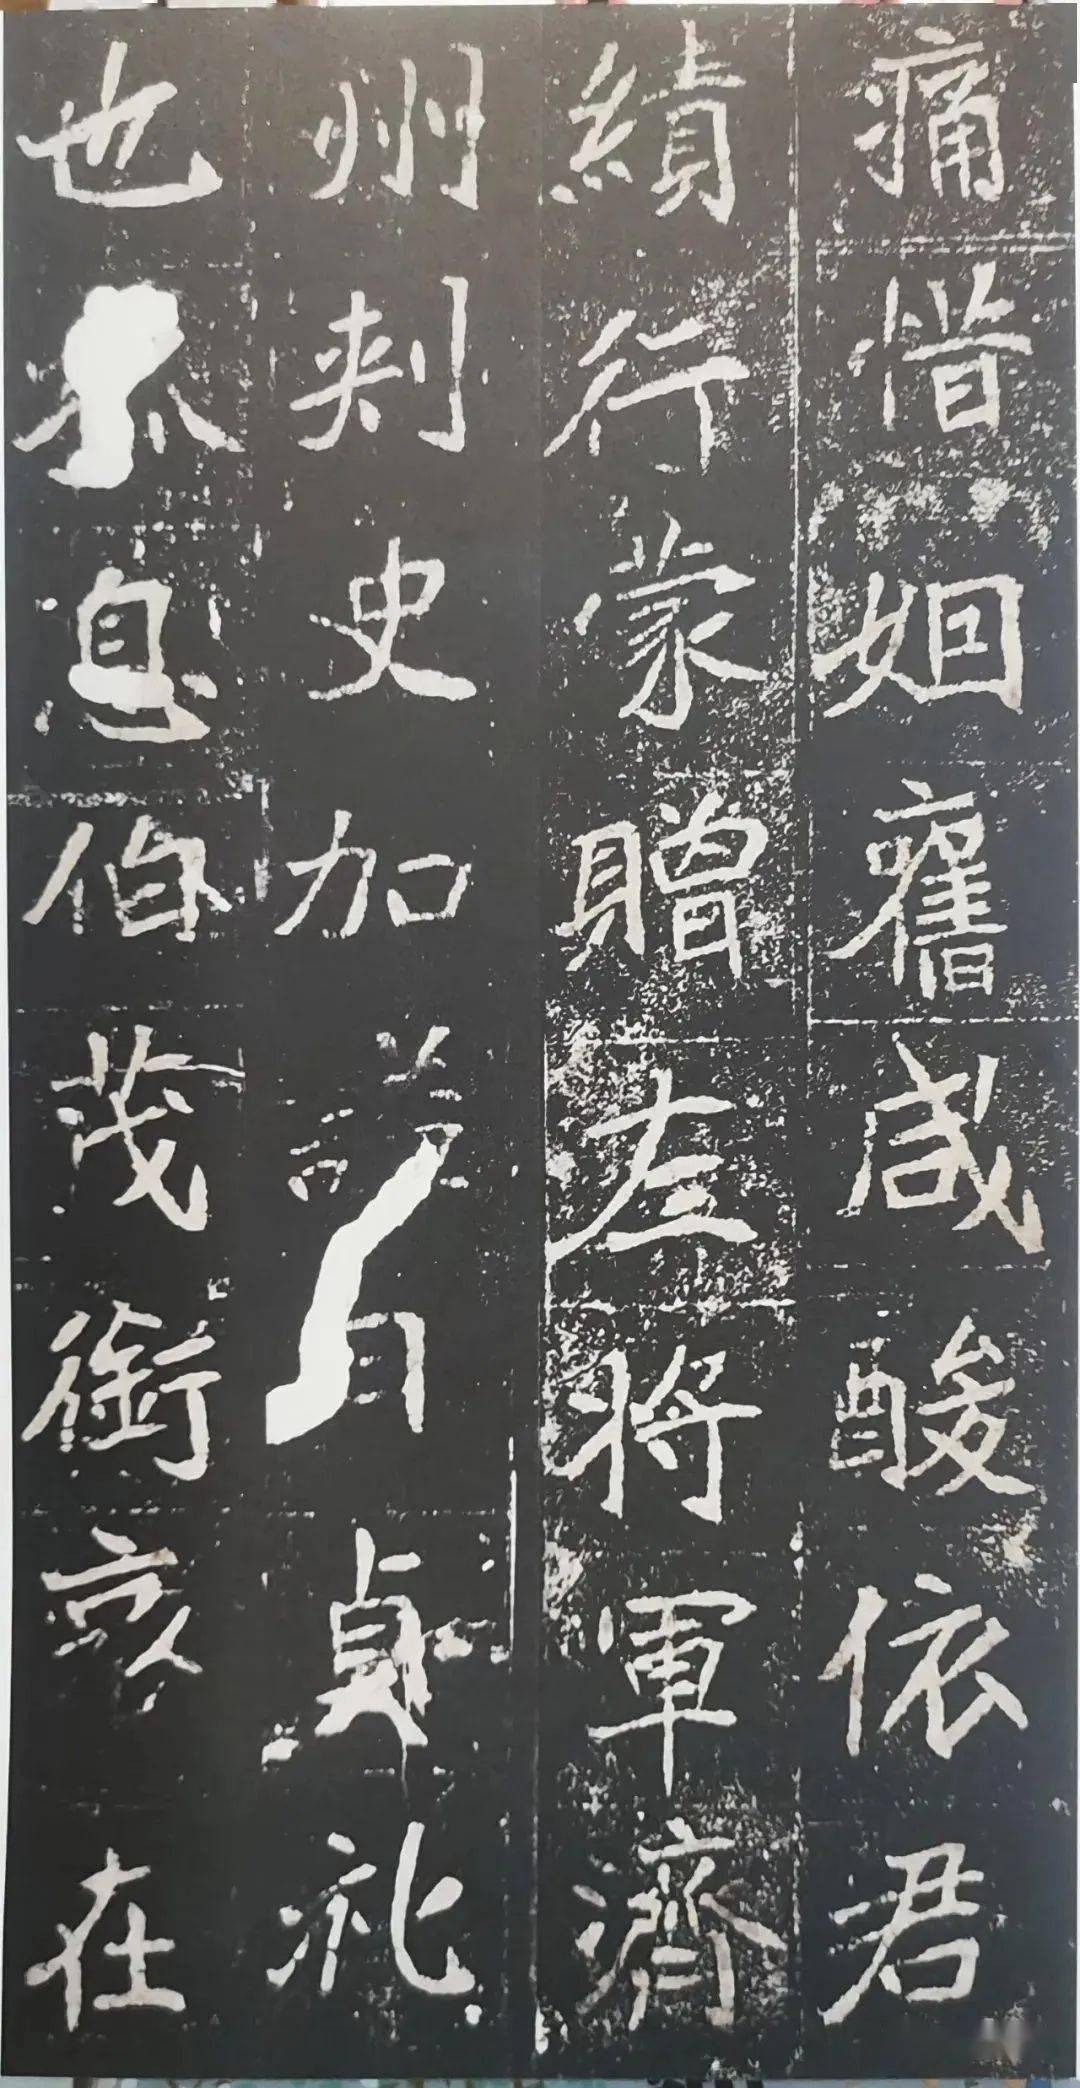 痛惜姻舊咸酸依君
績行蒙贈左將軍濟
州刺史加謚曰貞礼
也孤息伯茂銜哀在